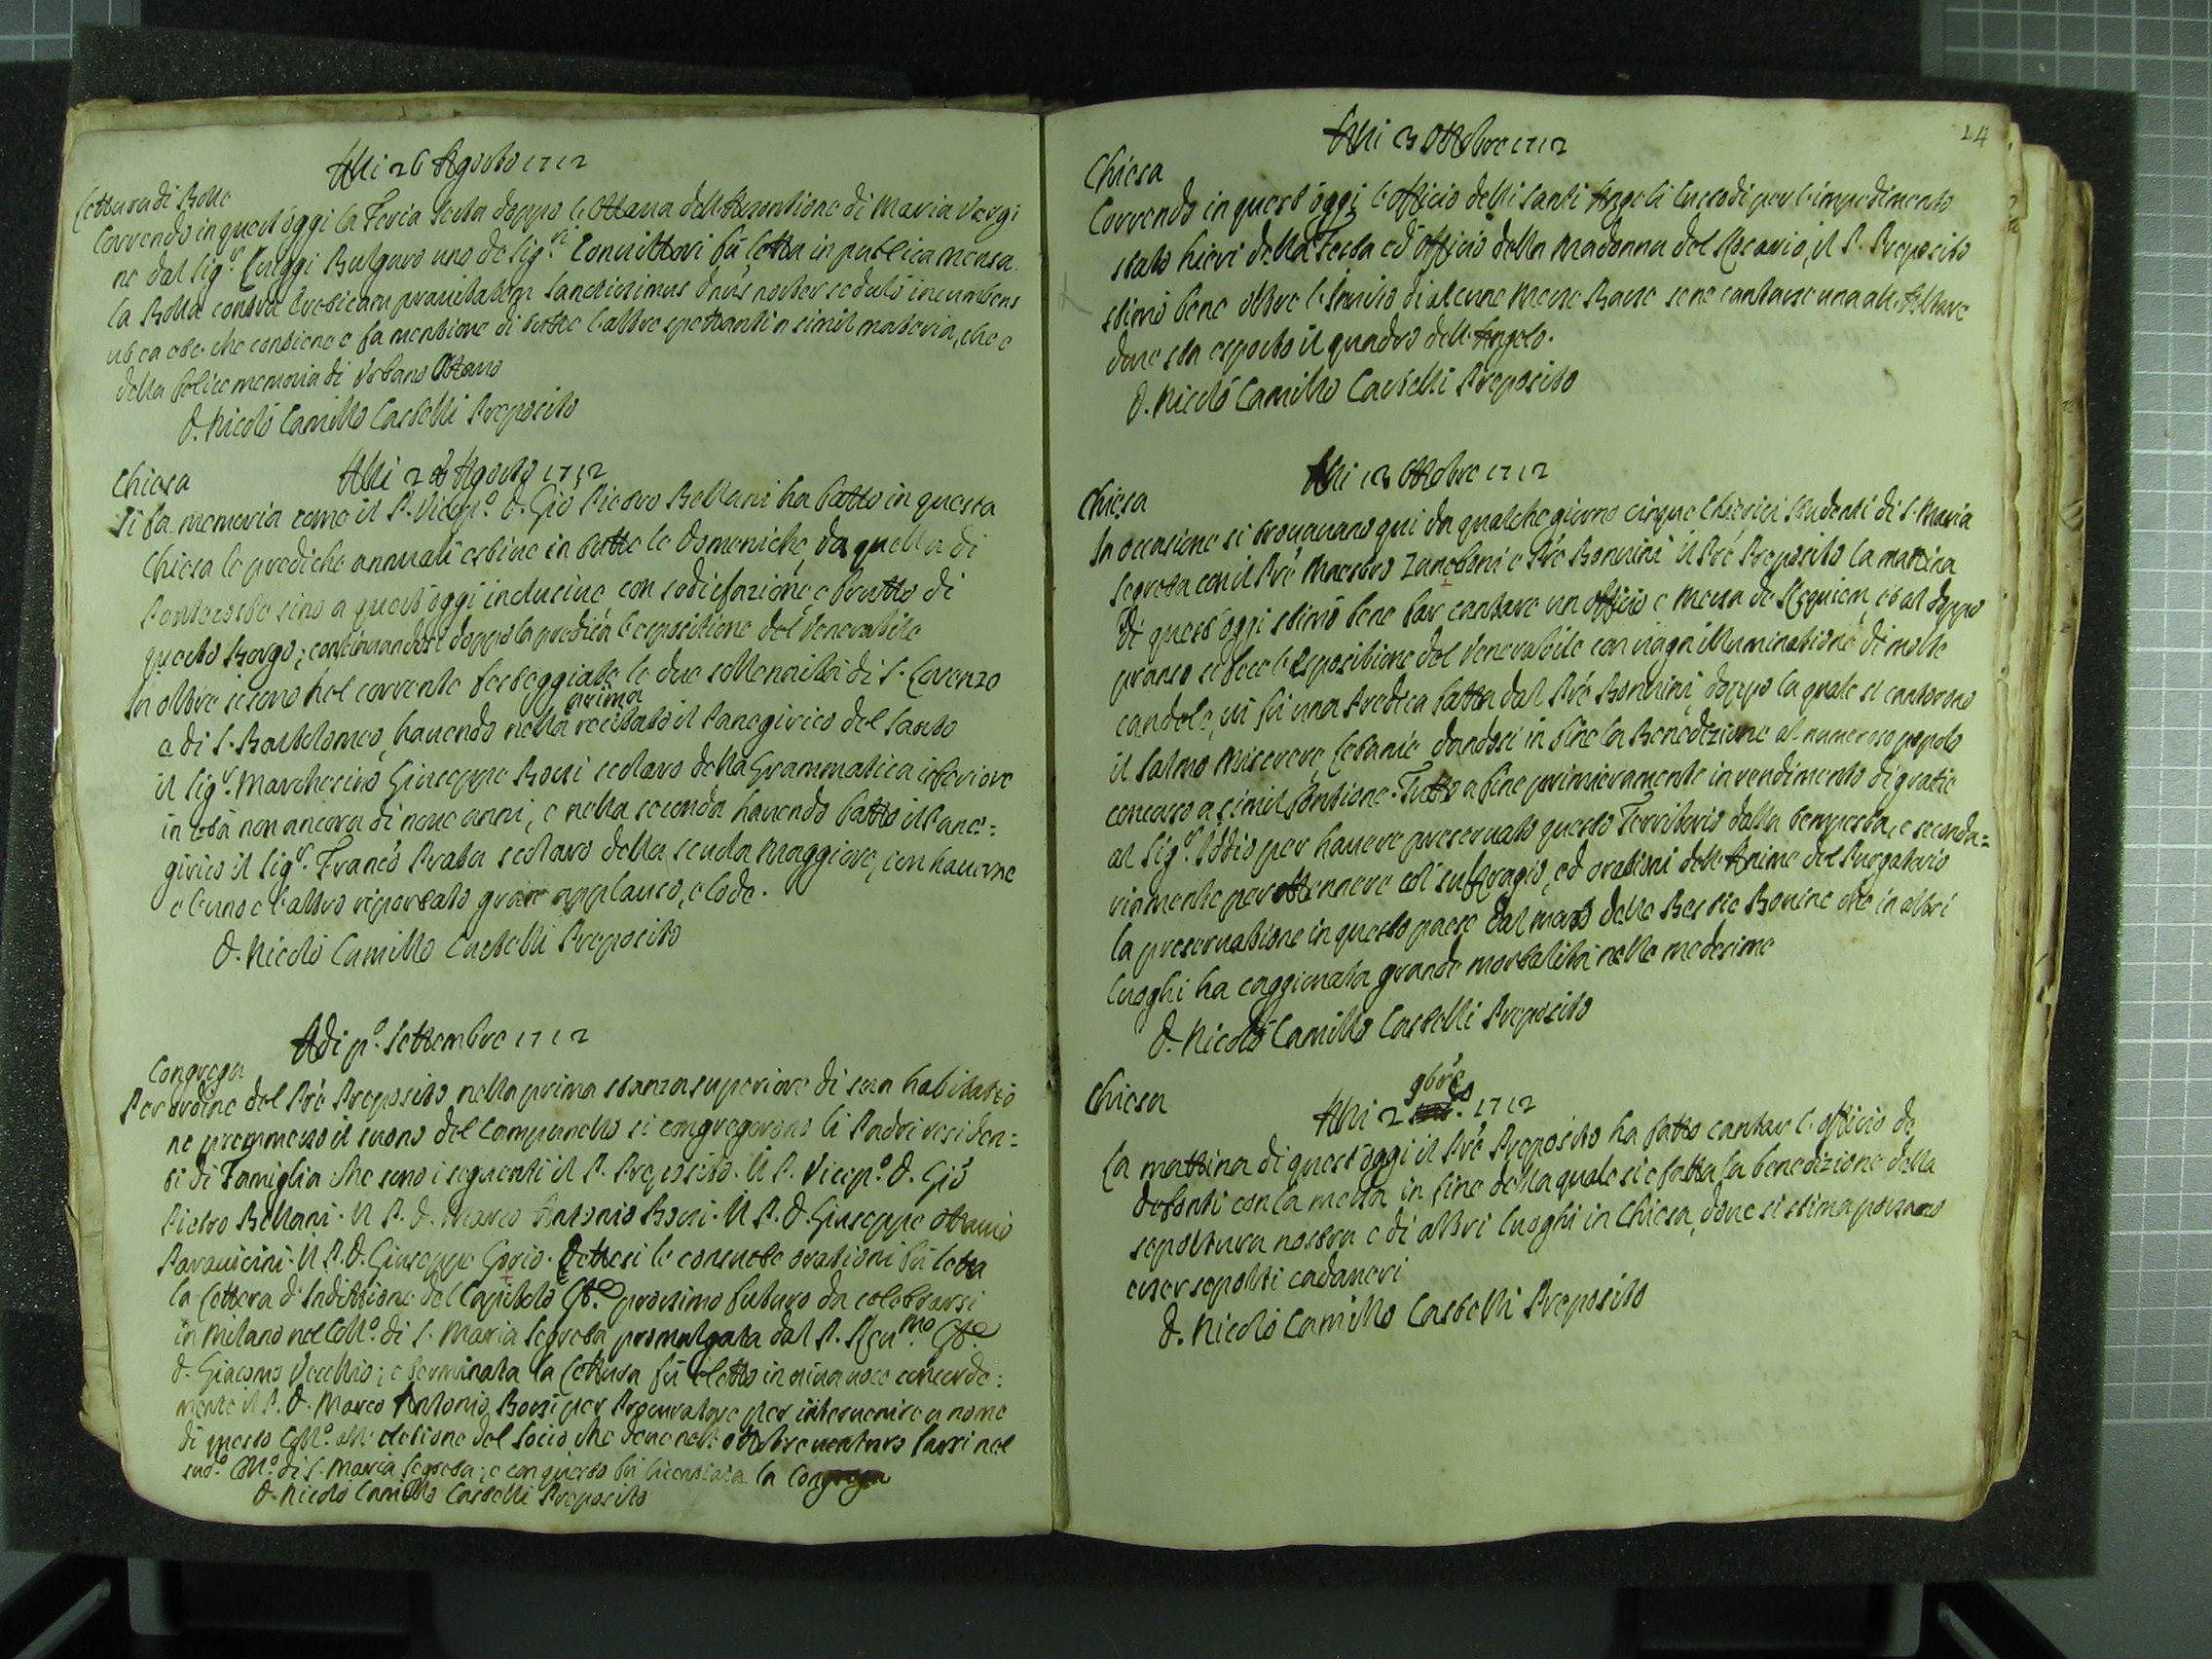 Alli 26 Agosto 1712
Lettura di Bolle
Correndo in quest'oggi la Feria sesta doppo l'Ottava dell'Assontione di Maria Vergi
ne dal Sig.r Luiggi Bulgaro uno de Sig.ri Convittori fù letta in publica mensa
la Bolla contra hæreticam pravitatem Sanctissimus Dnus noster sedulò incumbens
ut ea etc. che contiene e fa mentione di tutte l'altre spettanti a simil materia, che è
della felice memoria di Urbano Ottavo
D. Nicolò Camillo Castelli Preposito
Chiesa
Alli 28 Agosto 1712
Si fa memoria come il P. Vicep.o D. Gio Pietro Bellani ha fatto in questa
Chiesa le prediche annuali estive in tutte le Domeniche, da quella di
Pentecoste sino a quest'oggi inclusive con sodisfazione, e frutto di
questo Borgo; continuandosi doppo la predica l'espositione del Venerabile
In oltre si sono nel corrente festeggiate le due sollennità di S. Lorenzo
e di S. Bartolomeo, havendo nella prima recitato il Panegirico del Santo
il Sig.r Marchesino Giuseppe Rossi scolaro della Grammatica inferiore
in età non ancora di nove anni, e nella seconda havendo fatto il Pane=
girico il Sig.r Franc.o Prata scolaro della scuola Maggiore, con haverne
e l'uno e l'altro riportato gran applauso, e lode.
D. Nicolò Camillo Castelli Preposito
Adi p.o Settembre 1712
Congrega
Per ordine del Pré Preposito nella prima stanza superiore di sua habitatio
ne premmesso il suono del Campanello si congregorono li Padri residen=
ti di Famiglia che sono i seguenti il P. Preposito. Il P. Vicep.o D. Gio
Pietro Bellani. Il P. D. Marco Antonio Rossi. Il P. D. Giuseppe Ottavio
Paravicini. Il P. D. Giuseppe Gorio. Dettesi le consuete orationi fù letta
la lettera d'Indittione del Capitolo Gñle prossimo futuro da celebrarsi
in Milano nel Coll.o di S. Maria Segreta promulgata dal P. Rev.mo Gñle
D. Giacomo Vecellio; e terminata la lettura fù eletto in viva voce concorde=
mente il P. D. Marco Antonio Rossi per Procuratore per intervenire a nome
di questo Coll.o all'elettione del Socio che deve nell'ottobre venturo farsi nel
sud.o Coll.o di S. Maria Segreta; e con questo fù licentiata la Congrega
D. Nicolò Camillo Castelli Preposito
24
Alli 3 Ottobre 1712
Chiesa
Correndo in quest'oggi l'officio delli Santi Angeli Custodi per l'impedimento
stato hieri della Festa ed officio della Madonna del Rosario, il P. Preposito
stimò bene oltre l'invito di alcune Messe Basse se ne cantasse una all'Altare
dove sta esposto il quadro dell'Angelo.
D. Nicolò Camillo Castelli Preposito
Alli 13 Ottobre 1712
Chiesa
In occasione si trovavano qui da qualche giorno cinque Chierici studenti di S. Maria
Segreta con il Pré Maestro Zaneboni e Pré Bonnini il Pré Preposito la mattina
di quest'oggi stimò bene far cantare un officio e Messa de Requiem, et al doppo
pranso si fece l'Espositione del Venerabile con vaga illuminatione di molte
candele, vi fù una Predica fatta dal Pré Bonnini, doppo la quale si cantorono
il Salmo Miserere, letanie dandosi in fine la Benedizione al numeroso popolo
concorso a simil fontione. Tutto a fine primieramente in rendimento di gratie
al Sig.r Iddio per havere preservato questo Territorio dalla tempesta, e seconda=
riamente per ottennere col suffragio, ed orationi dell'Anime del Purgatorio
la preservatione in questo paese dal male delle Bestie Bovine che in altri
luoghi ha caggionata grande mortalità nelle medesime
D. Nicolò Camillo Castelli Preposito
Chiesa
Alli 2 9bré 1712
La mattina di quest'oggi il Pré Preposito ha fatto cantar l'officio de
defonti con la messa in fine della quale si è fatta la benedizione della
sepoltura nostra e di altri luoghi in Chiesa, dove si stima possano
esser sepolti cadaveri
D. Nicolò Camillo Castelli Preposito